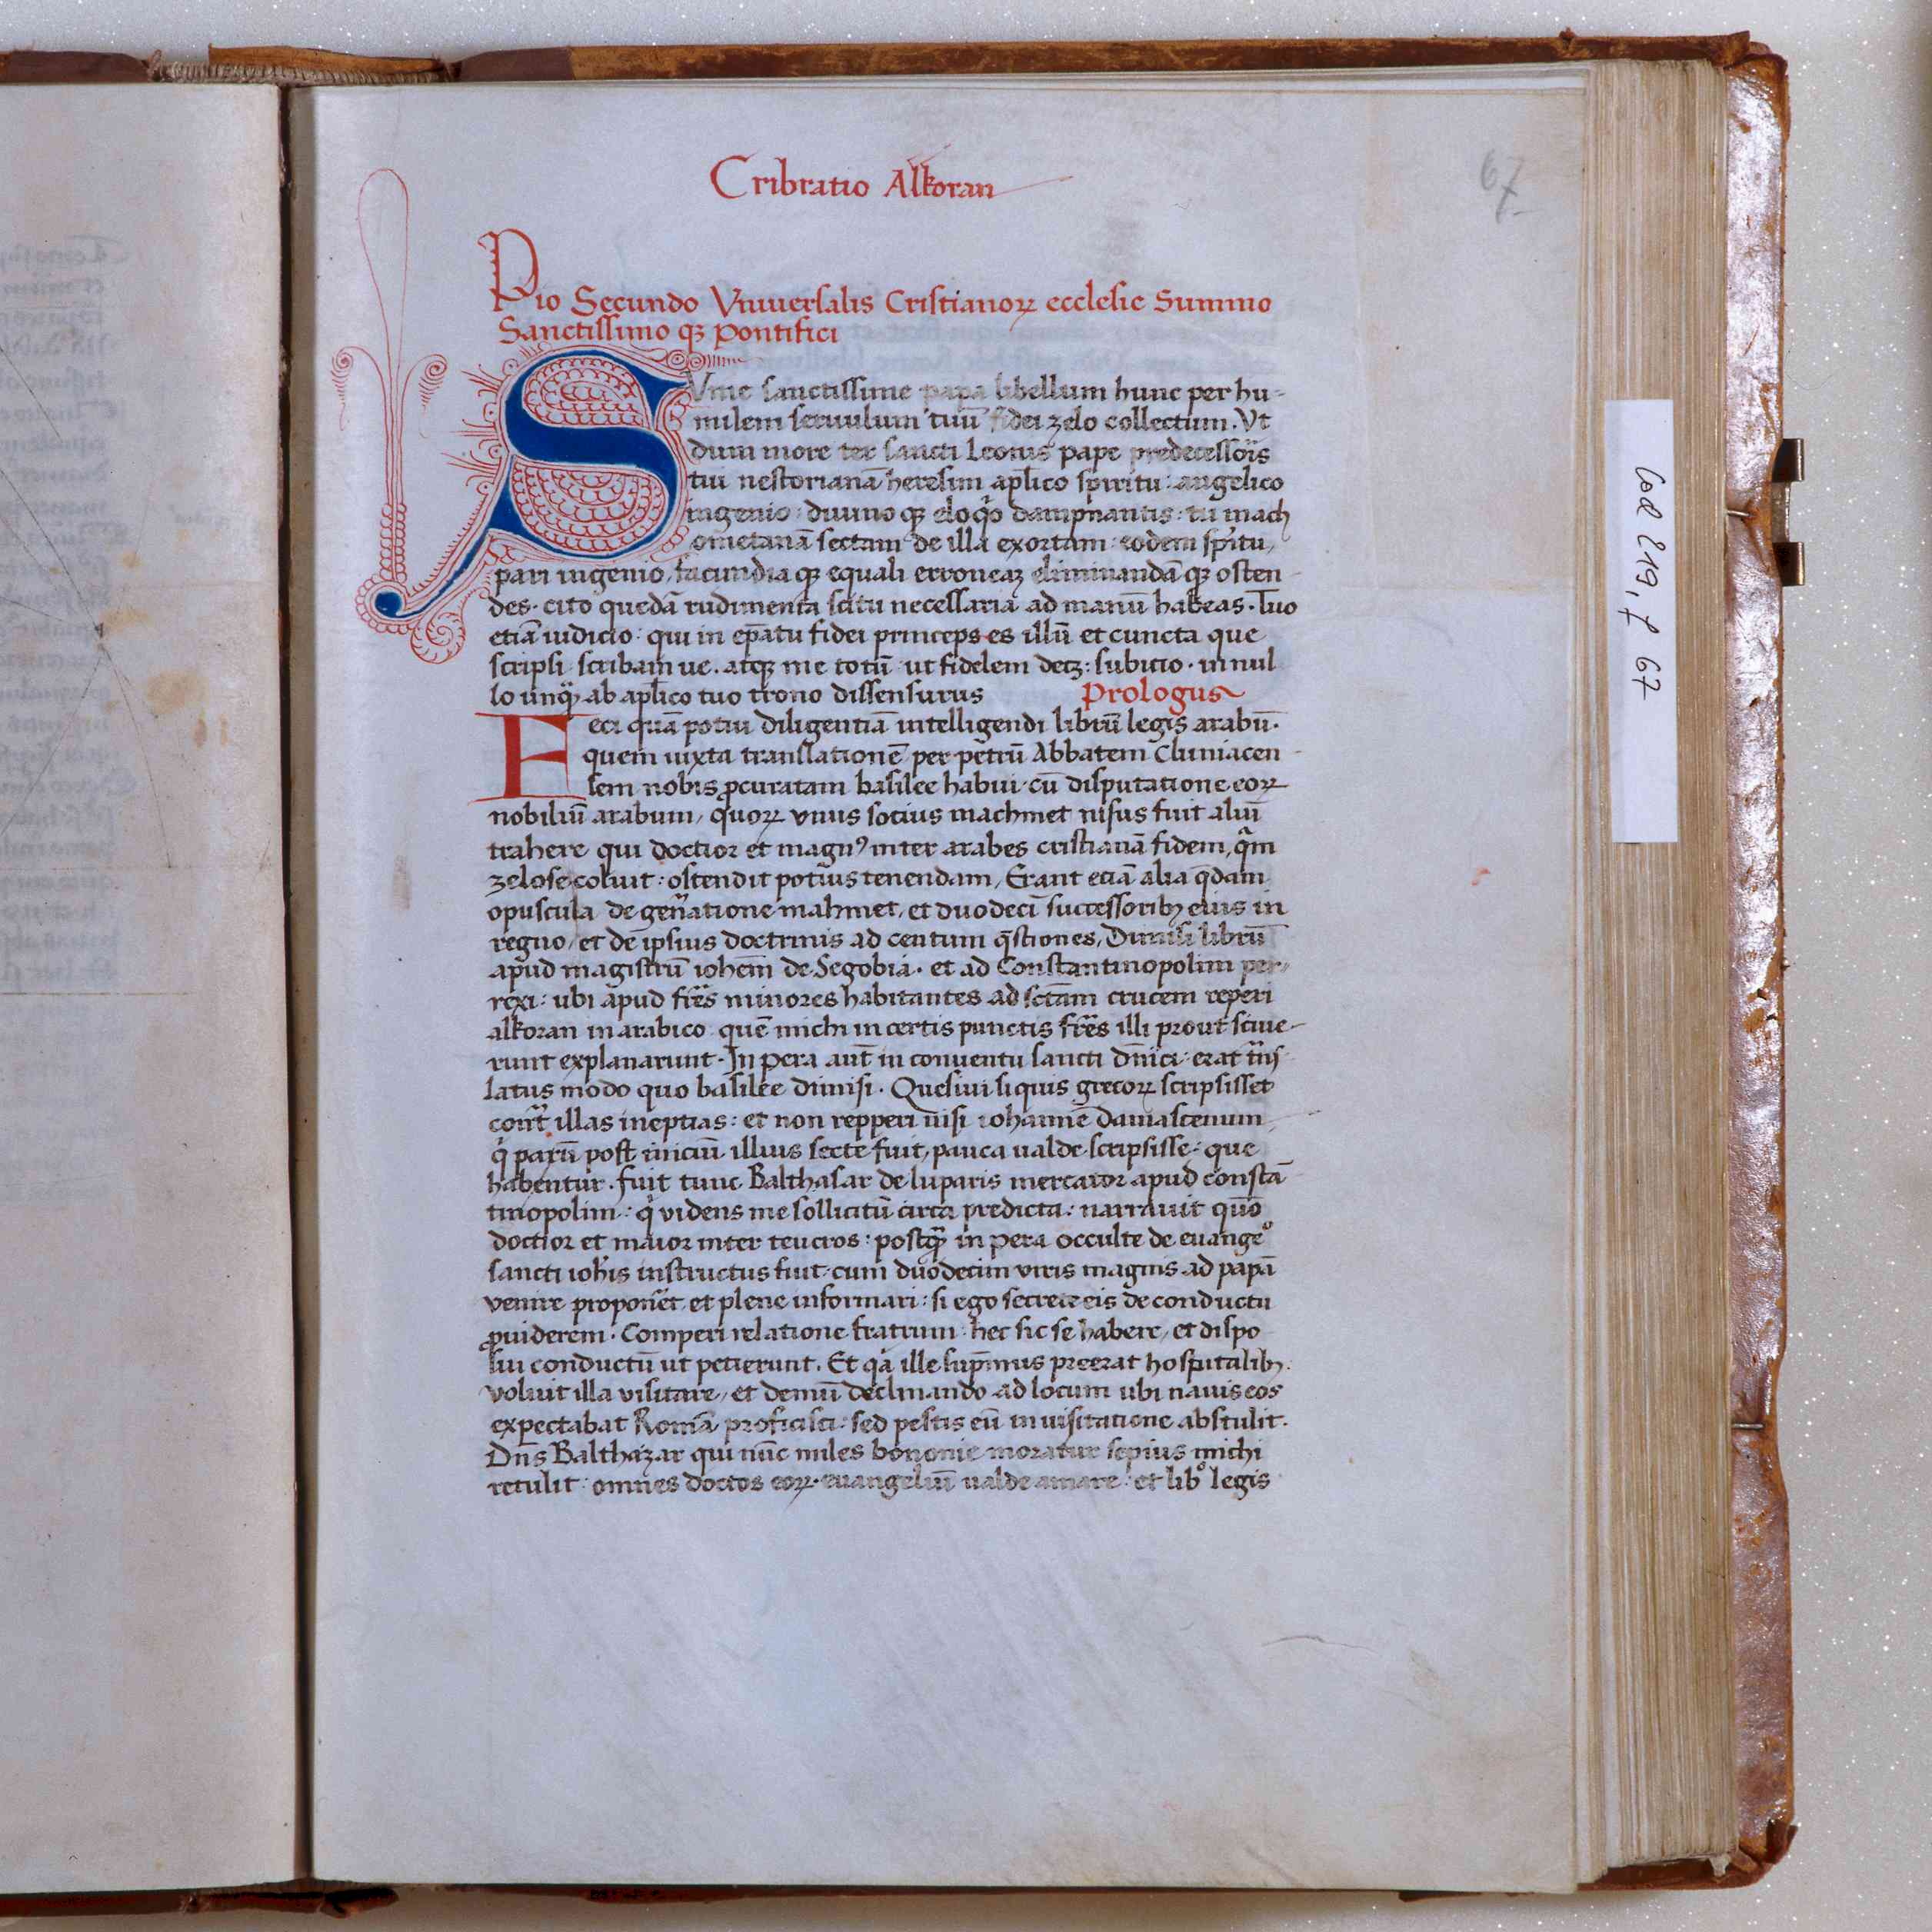 67
Cribratio Alkoran
Pio Secundo Vniuersalis Cristianoꝝ ecclesie Summo
Sanctissimo qꝫ pontifici
SVme sanctissime papa libellum hunc per hu-
milem seruulum tuū fidei zelo collectum. Vt
dum more ter sancti Leonis pape predecessoīs
tui nestorianā heresim apl̄ico spiritu: angelico
ingenio: diuino qꝫ eloq̊o dampnantis: tu mach
ometanā sectam de illa exortam: eodem sp̄itu,
pari ingenio, facundia qꝫ equali erroneaꝫ eliminandā qꝫ osten
des. cito quedā rudimenta scitu necessaria ad manū habeas. Tuo
etiā iudicio: qui in ep̄atu fidei princeps es illū et cuncta que
scripsi scribam ue. atqꝫ me totū ut fidelem decꝫ: subicio. in nul
lo unqꝫ ab apl̄ico tuo trono dissensurus Prologus
Feci quā potui diligentiā intelligendi librū legis arabū.
quem iuxta translationē per petrū Abbatem Cluniacen
sem nobis ꝓcuratam basilee habui cū disputatione eoꝝ
nobiliū arabum, quoꝝ vnus socius machmet nisus fuit aliū
trahere qui doctior et magnꝰ inter arabes cristianā fidem, q̄m
zelose coluit: ostendit potius tenendam, Erant etiā alia q̄dam
opuscula de gen̄atione mahmet, et duodecī successoribꝫ eius in
regno, et de ipsius doctrinis ad centum q̄stiones, Dimisi librū
apud magistrū ioheem̄ de Segobia. et ad Constantinopolim per-
rexi: ubi apud fr̄es minores habitantes ad sctam̄ crucem reperi
alkoran in arabico quē michi in certis punctis fr̄es illi prout sciue-
runt explanarunt. In pera aut̄ in conuentu sancti dn̄ici: erat tn̄s
latus modo quo basilee dimisi. Quesiui si quis grecoꝝ scripsisset
cont̄ illas ineptias: et non repperi nisi iohannē damascenum
q̇ parū post iniciū illius secte fuit, pauca ualde scripsisse: que
habentur. fuit tunc Balthasar de luparis mercator apud constā
tinopolim: q̇ videns me sollicitū circa predicta: narrauit quō
doctior et maior inter teucros: postqꝫ in pera occulte de euangeº
sancti ioh̄is instructus fuit cum duodecim viris magnis ad papā
venire propon̄et et plene informari: si ego secrete eis de conductu
ꝓuiderem. Comperi relatione fratrum hec sic se habere, et dispo
sui conductū ut petierunt. Et q̇a ille sup̄mus preerat hospitalibꝫ.
voluit illa visitare, et demū declinando ad locum ubi nauis eos
expectabat Romā proficisci: sed pestis eū in uisitatione abstulit.
Dn̄s Balthazar qui nūc miles bononie moratur sepius michi
retulit: omnes doctos eoꝝ euangeliū ualde amare: et libº legis
Cod 219, f 67